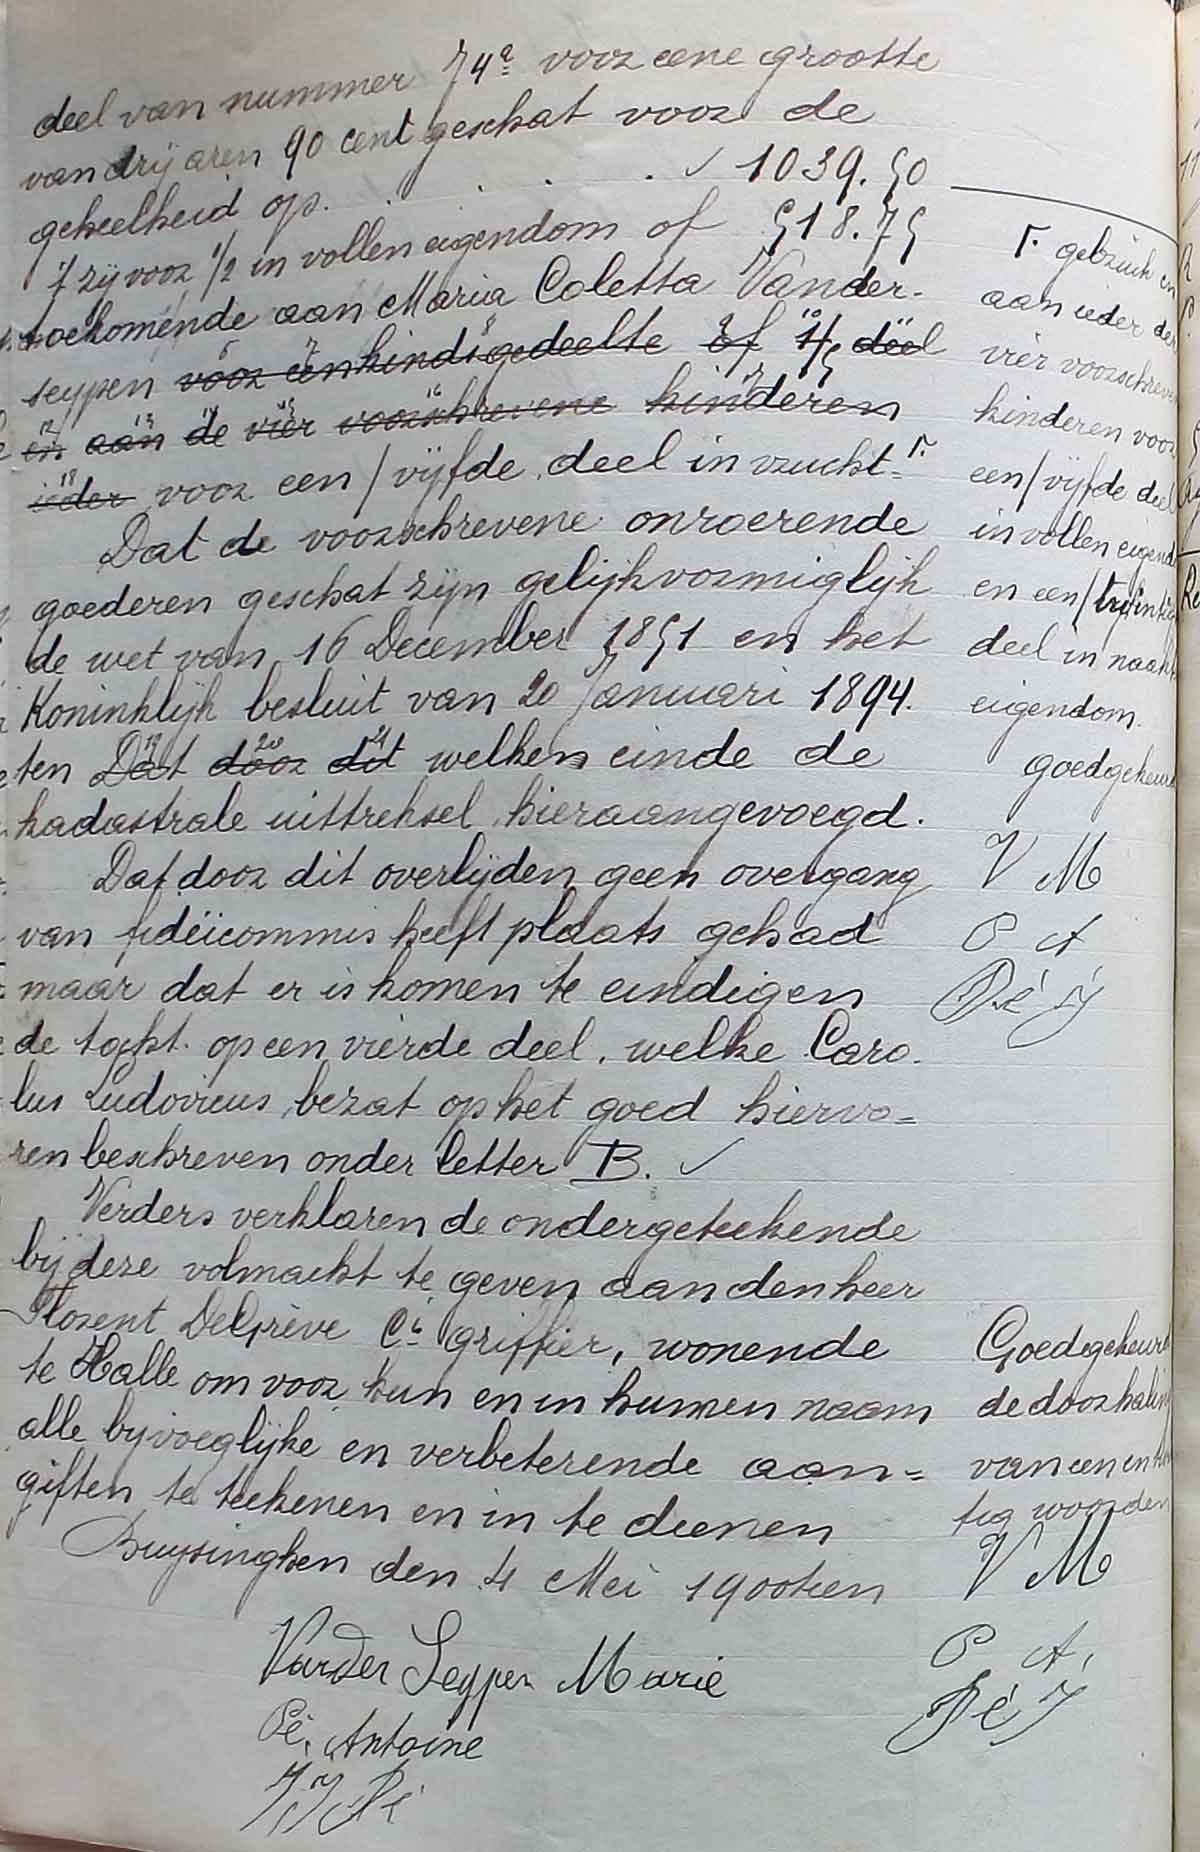 deel van nummer 74a voor eene grootte
van drij aren 90 cent geschat voor de
geheelheid op. . . . ✓ 1039.50
't zij voor 1/2 in vollen eigendom of 518.75
toekomende aan Maria Coletta Vander-
seypen voor een kindsgedeelte of 1/5 deel
en aan de vier voorschrevene kinderen
ieder voor een/vijfde deel in vrucht=Γ.
Dat de voorschrevene onroerende
goederen geschat zijn gelijkvormiglijk
de wet van 16 December 1851 en het
Koninklijk besluit van 20 Januari 1894.
ten Dat door dit welken einde de
kadastrale uittreksel hieraangevoegd.
Dat door dit overlijden geen overgang
van fideïcommis heeft plaats gehad
maar dat er is komen te eindigen
de tocht op een vierde deel, welke Caro-
lus Ludovicus bezat op het goed hiervo=
ren beschreven onder letter B. ✓
Verders verklaren de ondergeteekende
bij deze volmacht te geven aan den heer
Florent DeGrève Ci griffier, wonende
te Halle om voor hun en in hunnen naam
alle bijvoeglijke en verbeterende aan=
giften te teekenen en in te dienen
Buysinghen den 4 Mei 1900tien
Vander Seypen Marie
Pé Antoine
J J Pé
Γ. gebruik en
aan ieder der
vier voorschreven
kinderen voor
een/vijfde deel
in vollen eigend
en een/
deel in naak
eigendom.
goedgekeurd
V M
P A
Pé J
Goedgekeurd
de doorhaling
van een en twin
tig woorden
V M
P A.
Pé J